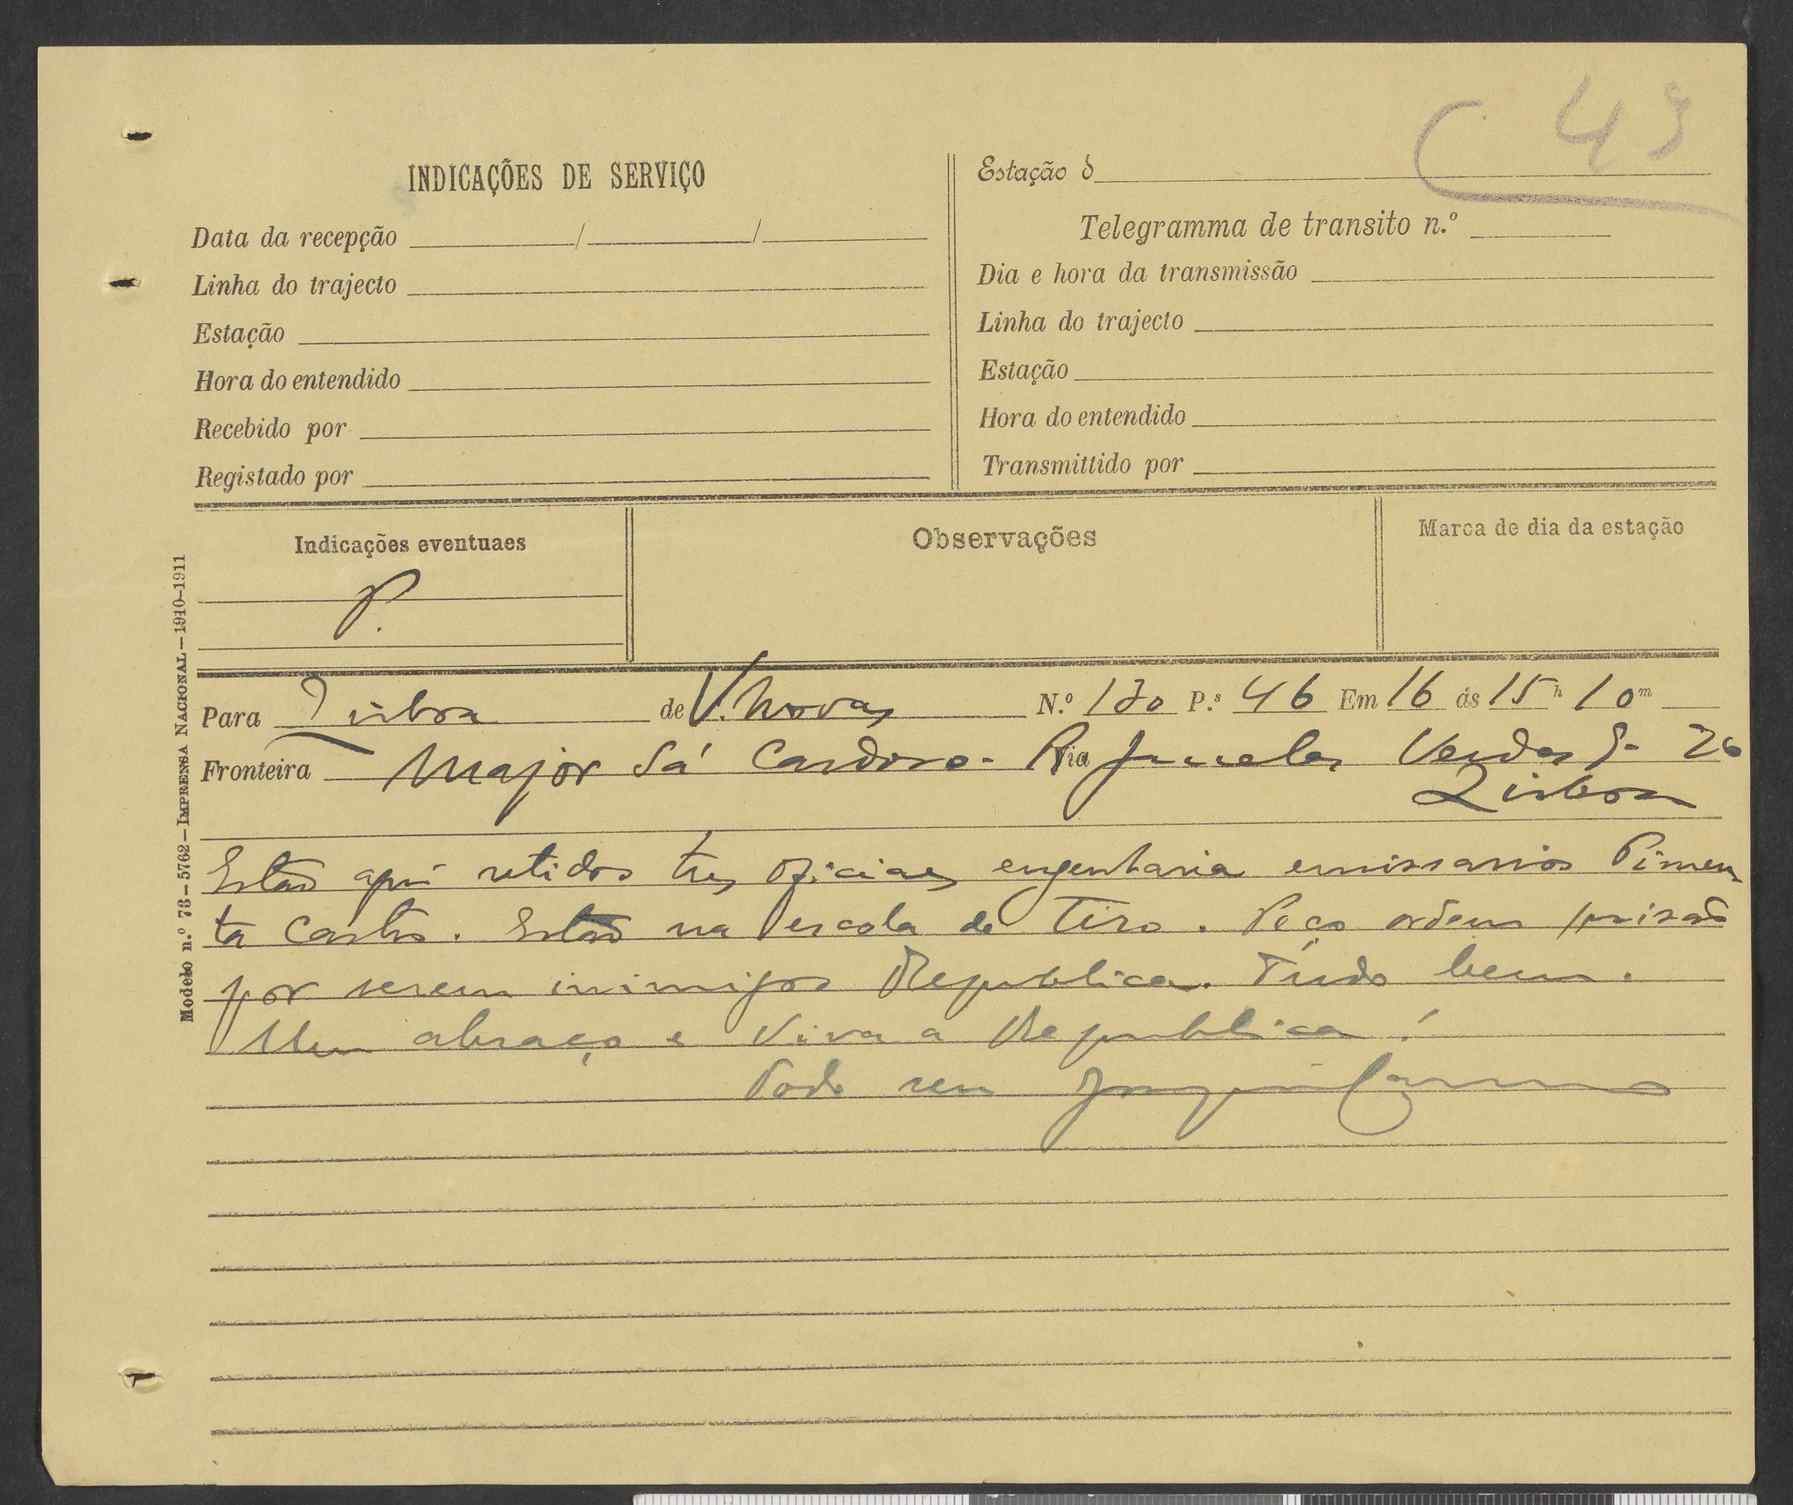 C 43
INDICAÇÕES DE SERVIÇO
Data da recepção / /
Linha do trajecto
Estação
Hora do entendido
Recebido por
Registado por
Estação d
Telegramma de transito n.º
Dia e hora da transmissão
Linha do trajecto
Estação
Hora do entendido
Transmittido por
Indicações eventuaes
P.
Observações
Marca de dia da estação
Modelo n.º 73–5762–IMPRENSA NACIONAL–1910–1911
Para Lisboa de V. Novas N.º 130 P.s 46 Em 16 ás 15 h 10 m
Fronteira Via
Major Sá Cardoso - R Janelas Verdes 26
Lisboa
Estão aqui retidos tres oficiaes engenharia emissarios Pimen
ta Castro. Estão na escola de Tiro. Peço ordem prisão
por serem inimigos Republica. Tudo bem.
Um abraço e Viva a Republica!
Todo seu